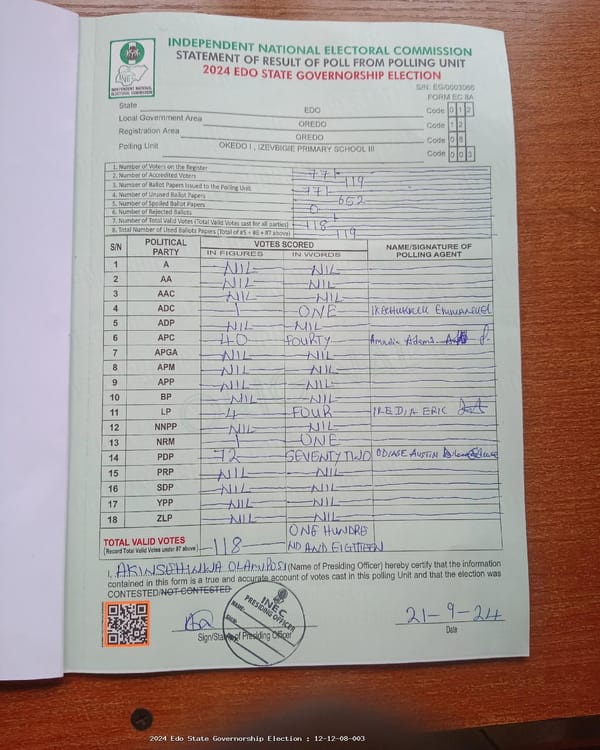 INDEPENDENT NATIONAL ELECTORAL COMMISSION
STATEMENT OF RESULT OF POLL FROM POLLING UNIT
2024 EDO STATE GOVERNORSHIP ELECTION
INEC
INDEPENDENT NATIONAL ELECTORAL COMMISSION
S/N: EG/0003066
FORM EC 8A
State EDO Code 0 1 2
Local Government Area OREDO Code 1 2
Registration Area OREDO Code 0 8
Polling Unit OKEDO I , IZEVBIGIE PRIMARY SCHOOL III Code 0 0 3
1. Number of Voters on the Register 771
2. Number of Accredited Voters 119
3. Number of Ballot Papers Issued to the Polling Unit 771
4. Number of Unused Ballot Papers 652
5. Number of Spoiled Ballot Papers 0
6. Number of Rejected Ballots 1
7. Number of Total Valid Votes (Total Valid Votes cast for all parties) 118
8. Total Number of Used Ballots Papers (Total of #5 + #6 + #7 above) 119
S/N POLITICAL PARTY VOTES SCORED NAME/SIGNATURE OF POLLING AGENT
IN FIGURES IN WORDS
1 A NIL NIL
2 AA NIL NIL
3 AAC NIL NIL
4 ADC 1 ONE IKECHUKWUK EMMANUEL
5 ADP NIL NIL
6 APC 40 FOURTY Amadin Adams
7 APGA NIL NIL
8 APM NIL NIL
9 APP NIL NIL
10 BP NIL NIL
11 LP 4 FOUR IREDIA ERIC
12 NNPP NIL NIL
13 NRM 1 ONE
14 PDP 72 SEVENTY TWO ODIASE AUSTIN
15 PRP NIL NIL
16 SDP NIL NIL
17 YPP NIL NIL
18 ZLP NIL NIL
TOTAL VALID VOTES 118 ONE HUNDRE
(Record Total Valid Votes under #7 above) ND AND EIGTTEEN
I, AKINSEHINWA OLANIPOSI (Name of Presiding Officer) hereby certify that the information
contained in this form is a true and accurate account of votes cast in this polling Unit and that the election was
CONTESTED/NOT CONTESTED
INEC
PRESIDING OFFICER
NAME:
SIGN:
21-9-24
Sign/Stamp of Presiding Officer Date
2024 Edo State Governorship Election : 12-12-08-003